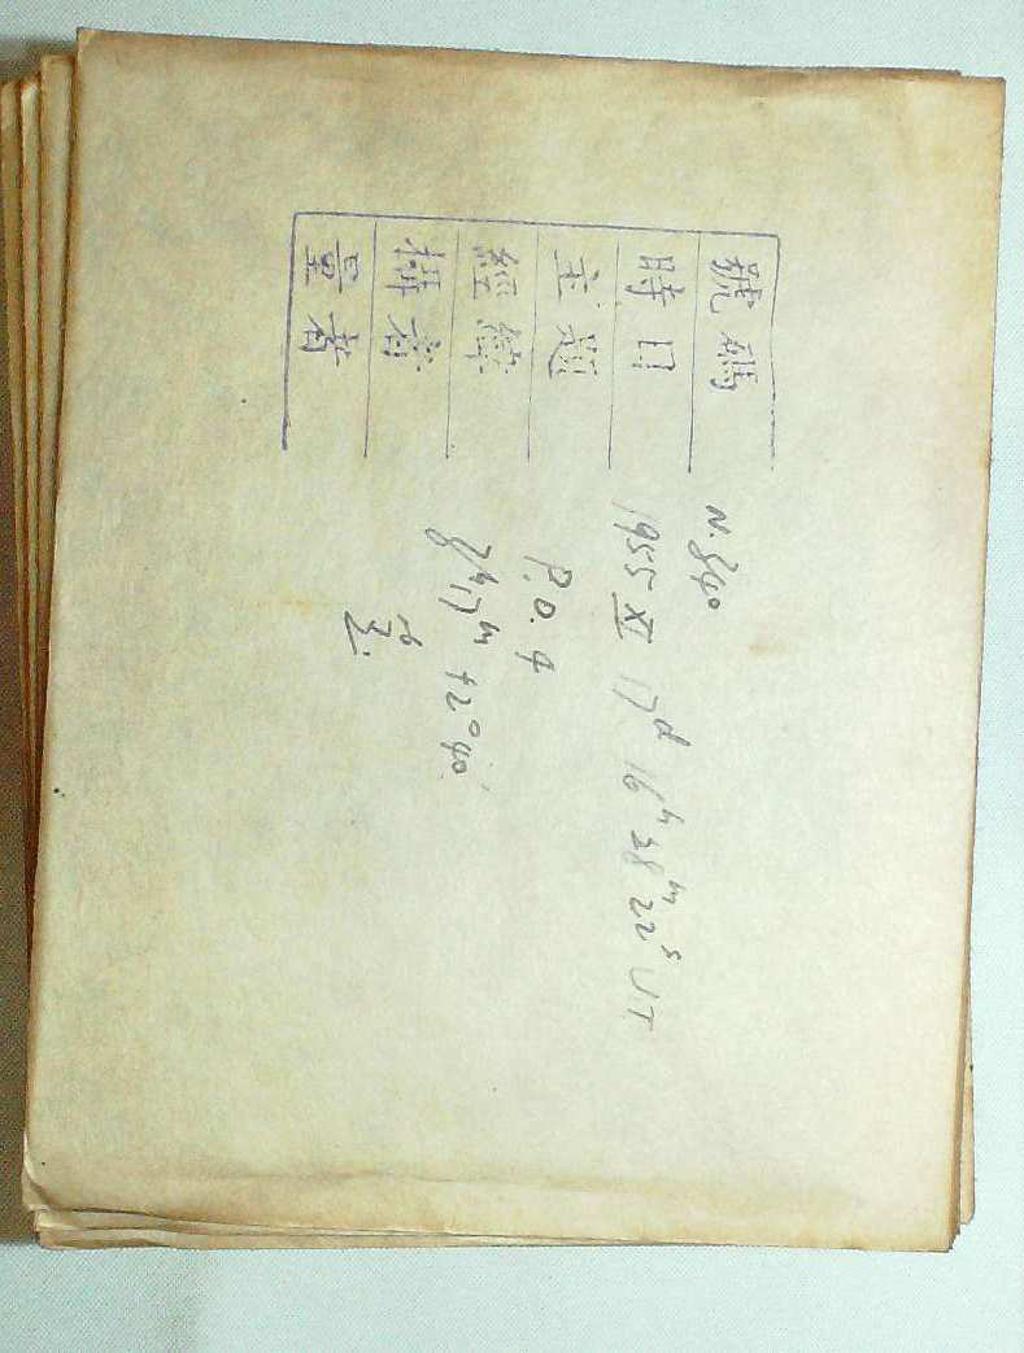 號碼 N. 840
時日 1955 XI 17d 16h 38m 22s UT
主題 P.O. 4
經緯 8h17m +2°40'
攝者
量者